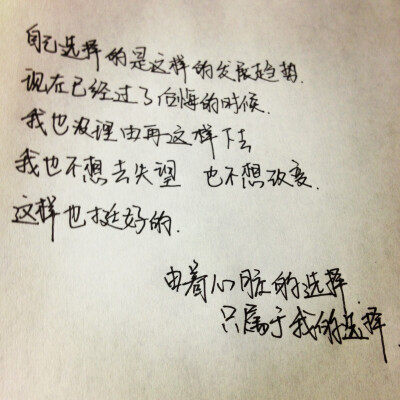 自己选择的是这样的发展趋势.
现在已经过了后悔的时候.
我也没理由再这样下去
我也不想去失望 也不想改变.
这样也挺好的.
由着心脏的选择.
只属于我的选择.